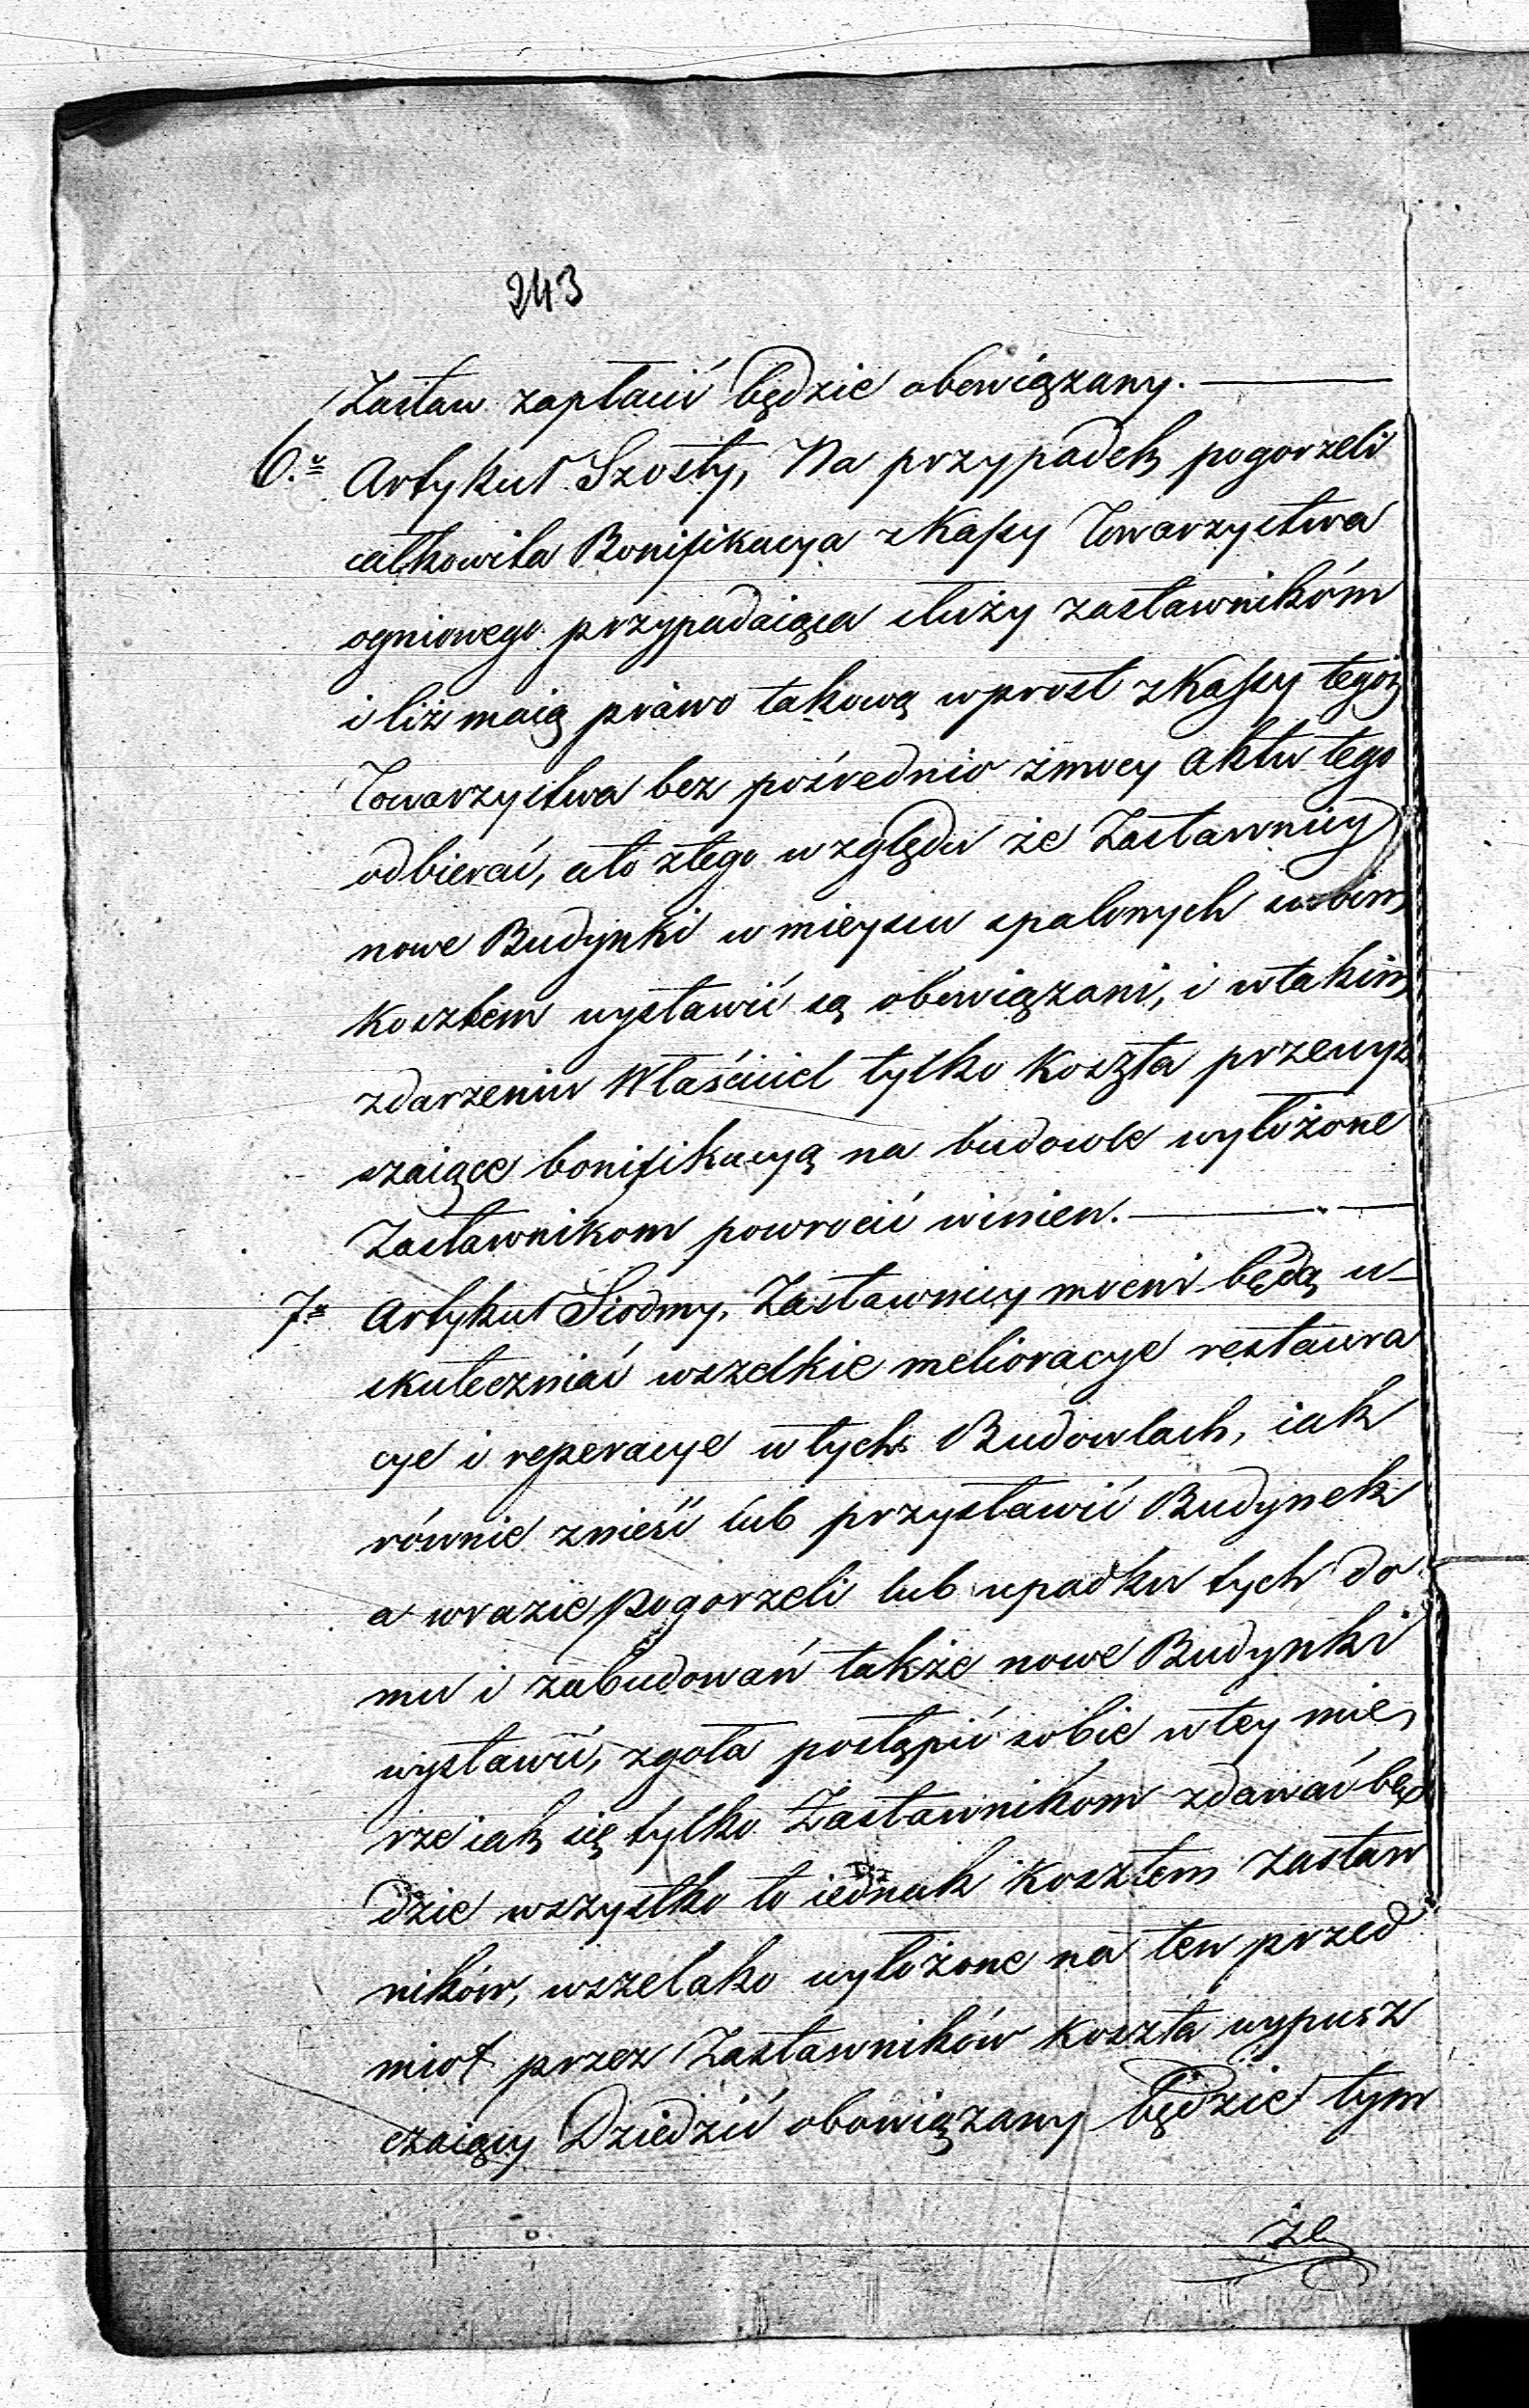 243
Zastaw zapłacić będzie obowiązany. —
6.º Artykuł Szósty, Na przypadek pogorzeli
całkowita Bonifikacya z Kassy Towarzystwa
ogniowego przypadaiąca służy zastawnikóm
i ciż maią prawo takową wprost z Kassy tegoż
Towarzystwa bez pośrednio z mocy aktu tego
odbierać, a to z tego względu że Zastawnicy
nowe Budynki w mieyscu spalonych swoim
kosztem wystawić są obowiązani, i w takim
zdarzeniu Właściciel tylko koszta przewyż
szaiące bonifikacyą na budowle wyłożone
Zastawnikom powrócić winien. —
7º Artykuł Siódmy, Zastawnicy mocni będą u-
skuteczniać wszelkie melioracye restaura
cye i reperacye w tych Budowlach, iak
równie znieść lub przystawić Budynek
a w razie pogorzeli lub upadku tych do
mu i zabudowań także nowe Budynki
wystawić, zgoła postąpić sobie w tey mie
rze iak się tylko Zastawnikóm zdawać bę
dzie wszystko to iednak kosztem Zastaw
ników, wszelako wyłożone na ten przed
miot przez Zastawników koszta wypusz
czaiący Dziedzic obowiązany będzie tym